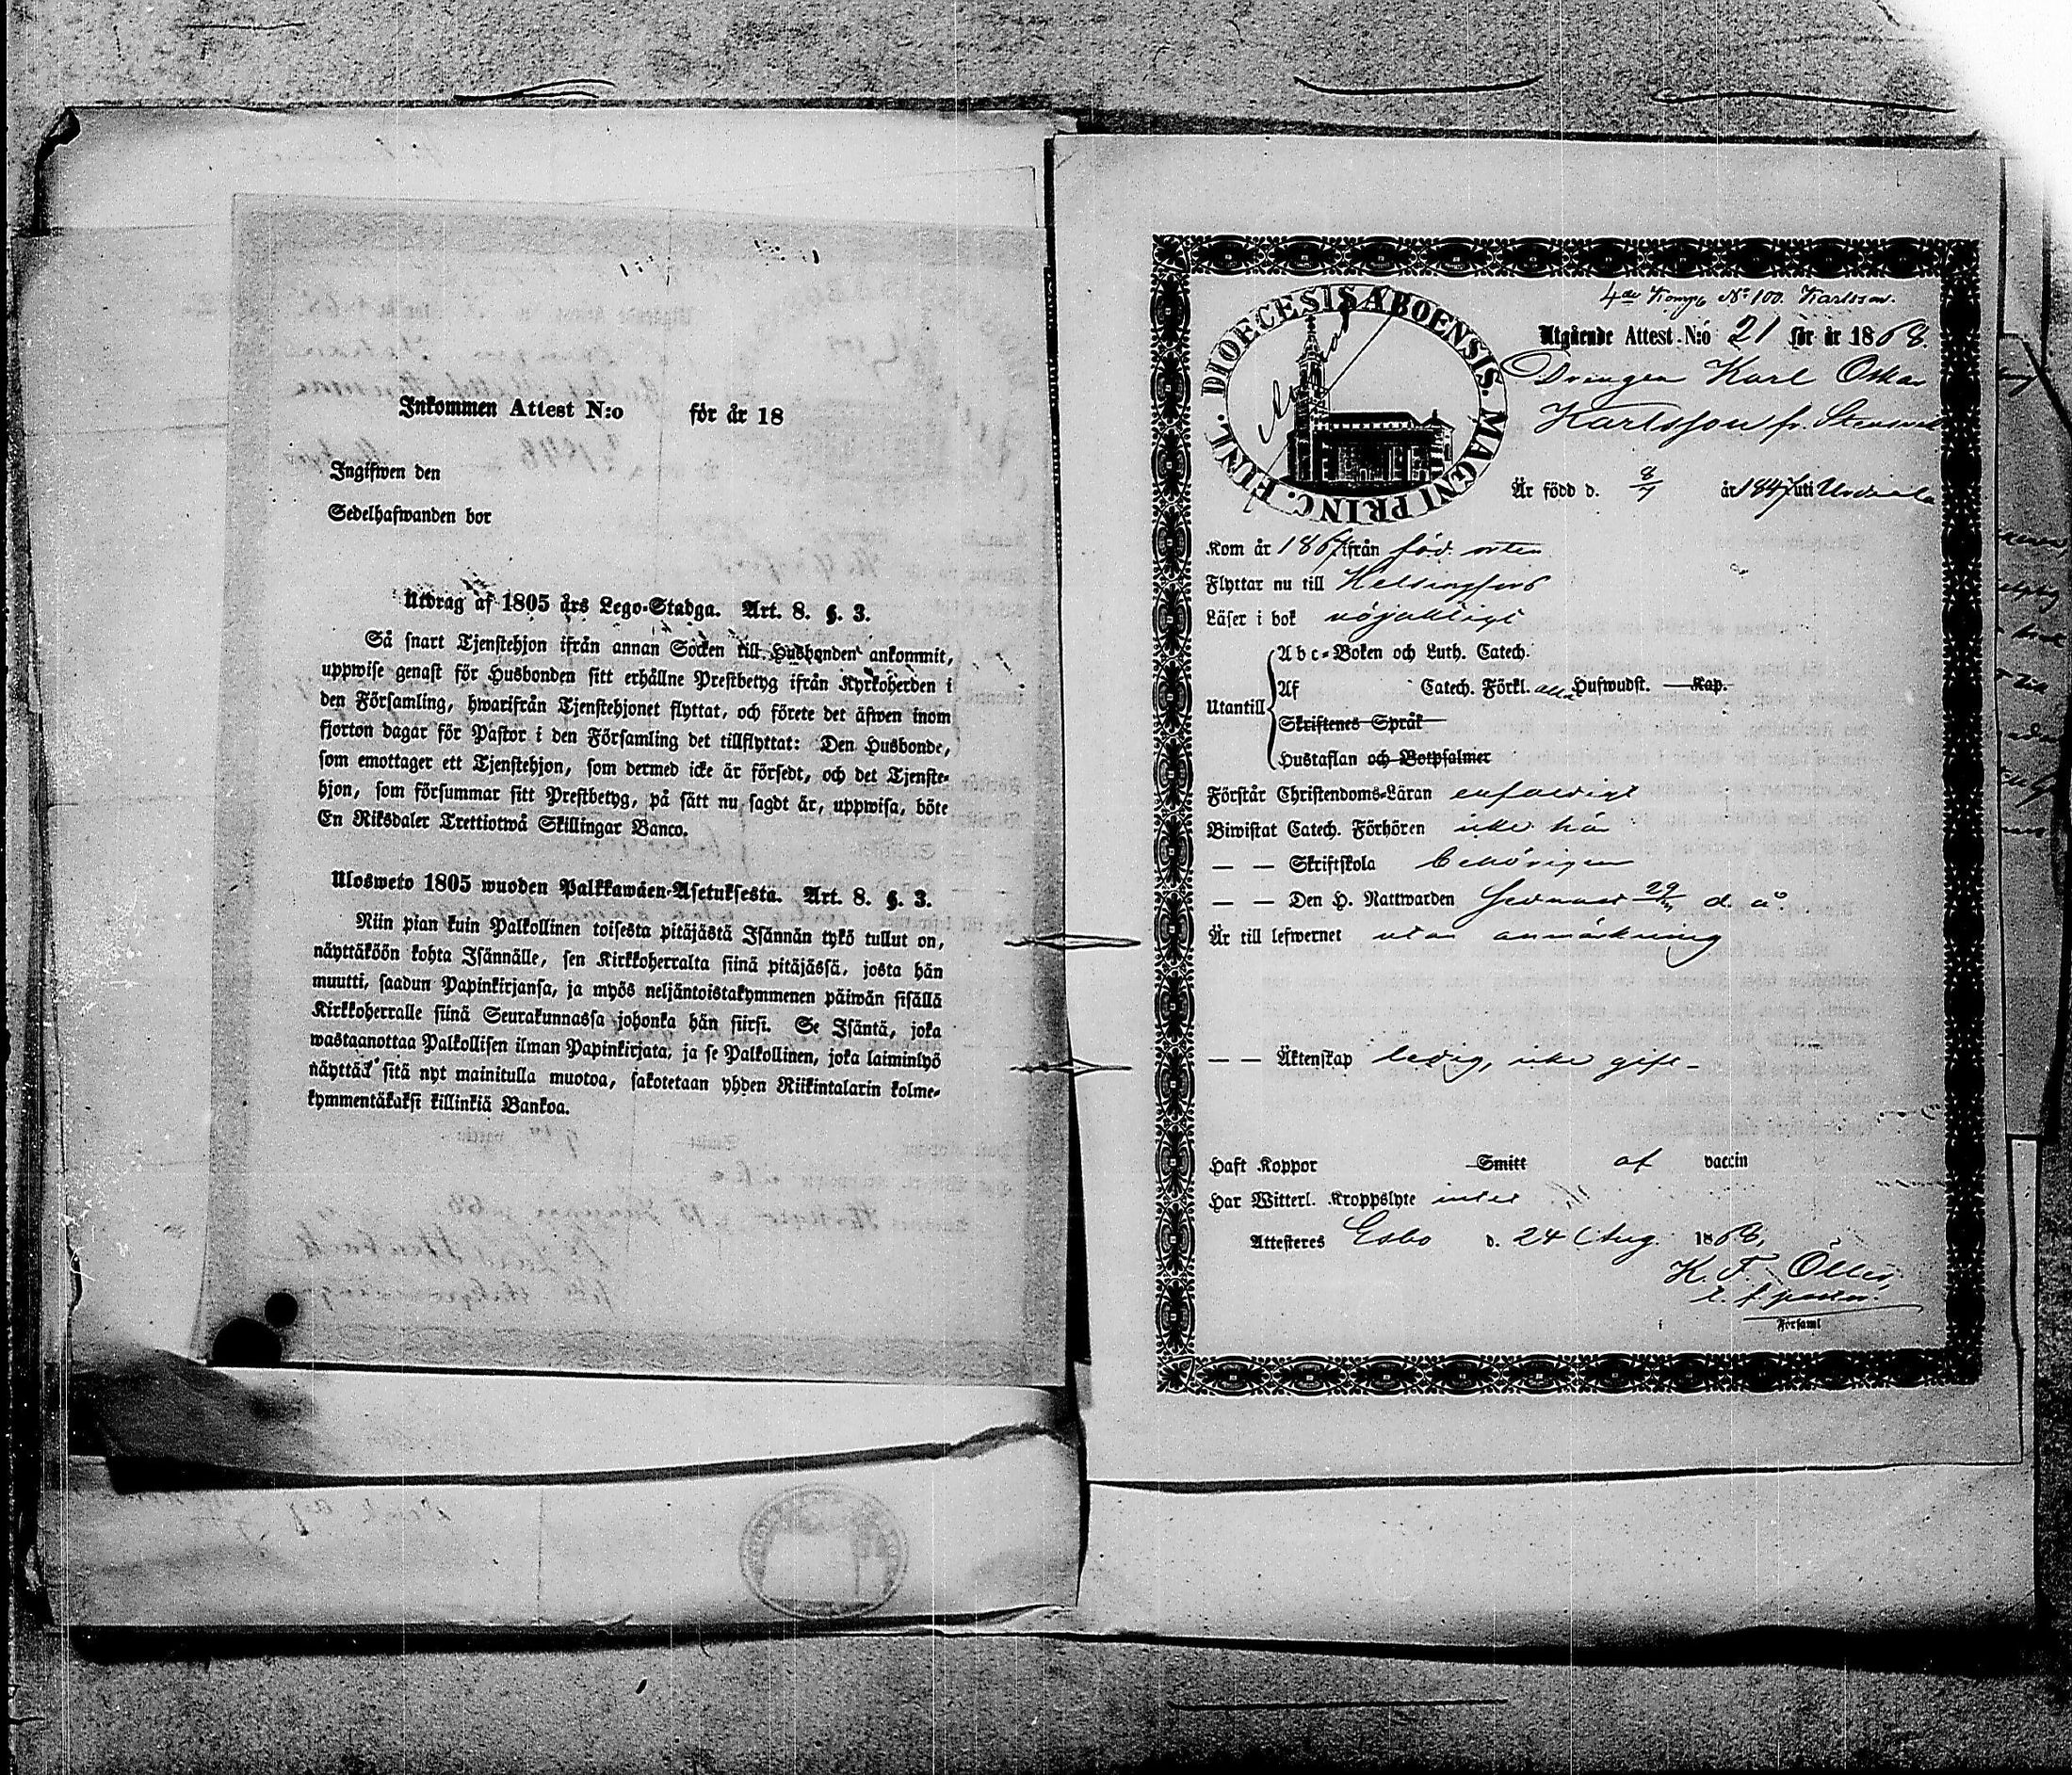 Inkommen Attest N:o för år 18
Ingifwen den
Sedelhafwanden bor
Utdrag af 1805 års Lego-Stadga. Art. 8. §. 3.
Så snart Tjenstehjon ifrån annan Socken till Husbonden ankommit,
uppwise genast för Husbonden sitt erhållne Prestbetyg ifrån Kyrkoherden i
den Församling, hwarifrån Tjenstehjonet flyttat, och förete det äfwen inom
fjorton dagar för Pastor i den Församling det tillflyttat: Den Husbonde,
som emottager ett Tjenstehjon, som dermed icke är försedt, och det Tjenste-
hjon, som försummar sitt Prestbetyg, på sätt nu sagdt är, uppwisa, böte
En Riksdaler Trettiotwå Skillingar Banco.
Ulosweto 1805 wuoden Palkkawäen-Asetuksesta. Art. 8. §. 3.
Niin pian kuin Palkollinen toisesta pitäjästä Isännän tykö tullut on,
näyttäköön kohta Isännälle, sen Kirkkoherralta siinä pitäjässä, josta hän
muutti, saadun Papinkirjansa, ja myös neljäntoistakymmenen päiwän sisällä
Kirkkoherralle siinä Seurakunnassa johonka hän siirsi. Se Isäntä, joka
wastaanottaa Palkollisen ilman Papinkirjata; ja se Palkollinen, joka laiminlyö
näyttää sitä nyt mainitulla muotoa, sakotetaan yhden Riikintalarin kolme-
kymmentäkaksi killinkiä Bankoa.
4de Komp. No 100. Karlsson.
DIOECESIS ABOENSIS. MAGNI PRINC. FINL.
Utgående Attest N:o 21 för år 1868.
Drengen Karl Oskar
Karlsson fr.
Är född d. 8/7 år 1847 uti Urdiala
Kom år 1867 ifrån föd. orten
Flyttar nu till Helsingfors
Läser i bok nöjaktligt
Abc-Boken och Luth. Catech.
Utantill Af Catech. Förkl. alla Hufwudst. Kap.
Skriftenes Språk
Hustaflan och Botpsalmer
Förstår Christendoms-Läran enfaldigt
Biwistat Catech. Förhören icke här
— — Skriftskola behörigen
— — Den H. Nattwarden senast 29/ d. å
Är till lefwernet utan anmärkning
— — Äktenskap ledig, icke gift -
Haft Koppor Smitt af vaccin
Har Witterl. Kroppslyte intet
Attesteres Esbo d. 24 Aug. 1868,
K. F.
i Forsaml